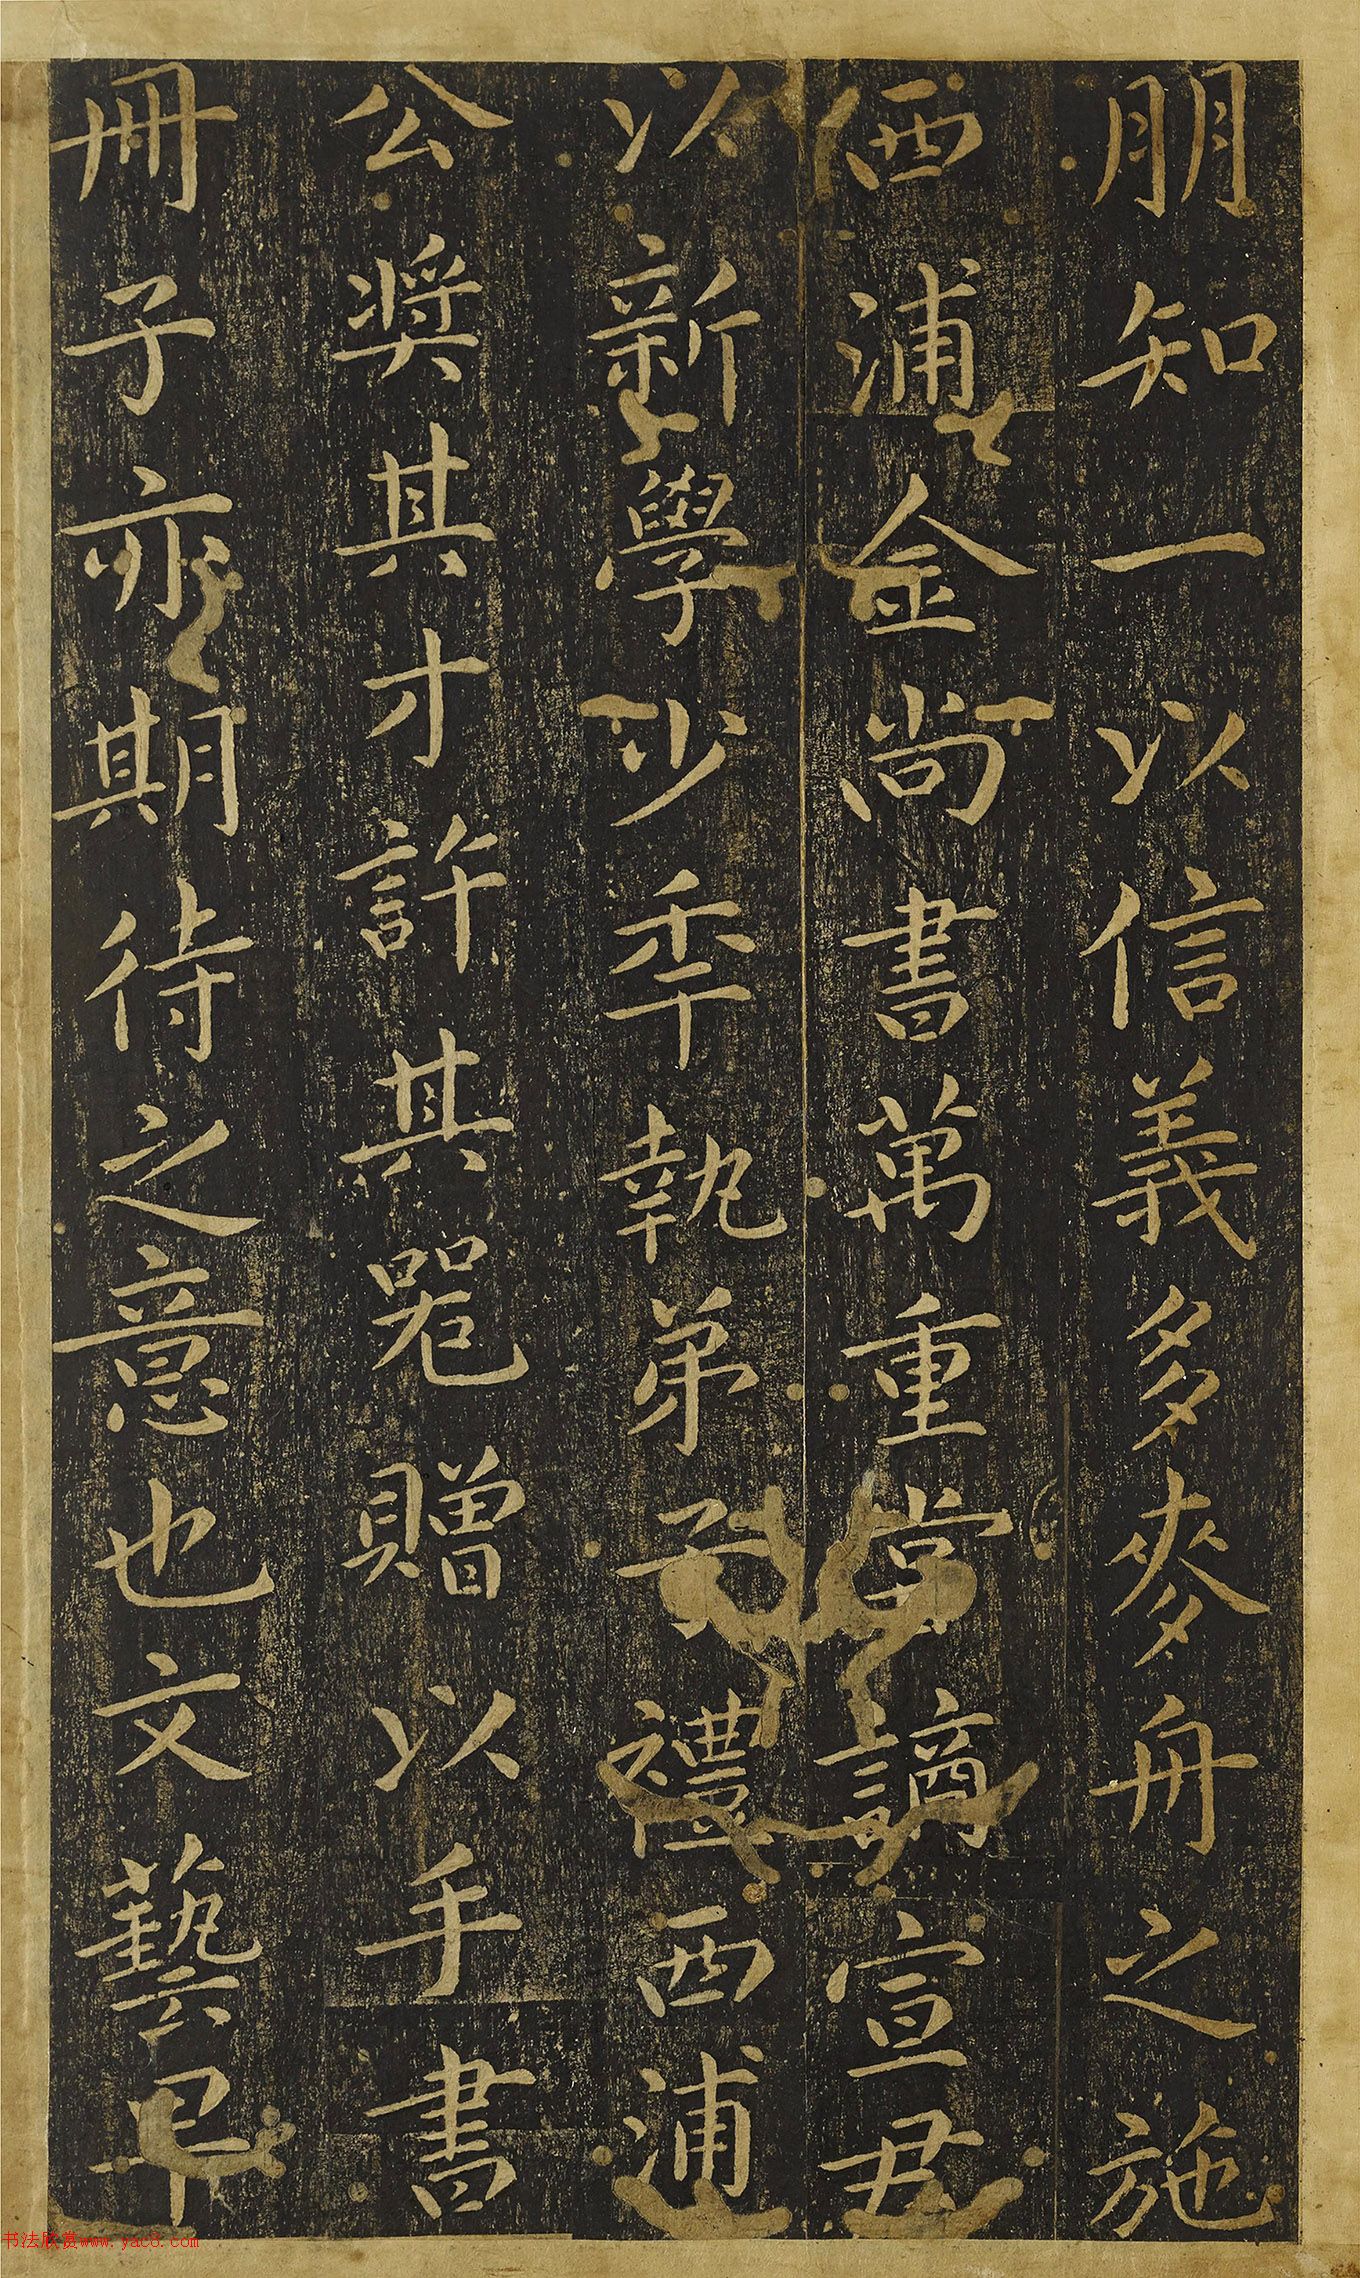 朋知一以信義多麥舟之施
西浦金尚書萬重嘗謫宣君
以新學少秊執弟子禮西浦
公奬其才許其器贈以手書
冊子亦期待之意也文藝早
书法欣赏www.yac8.com